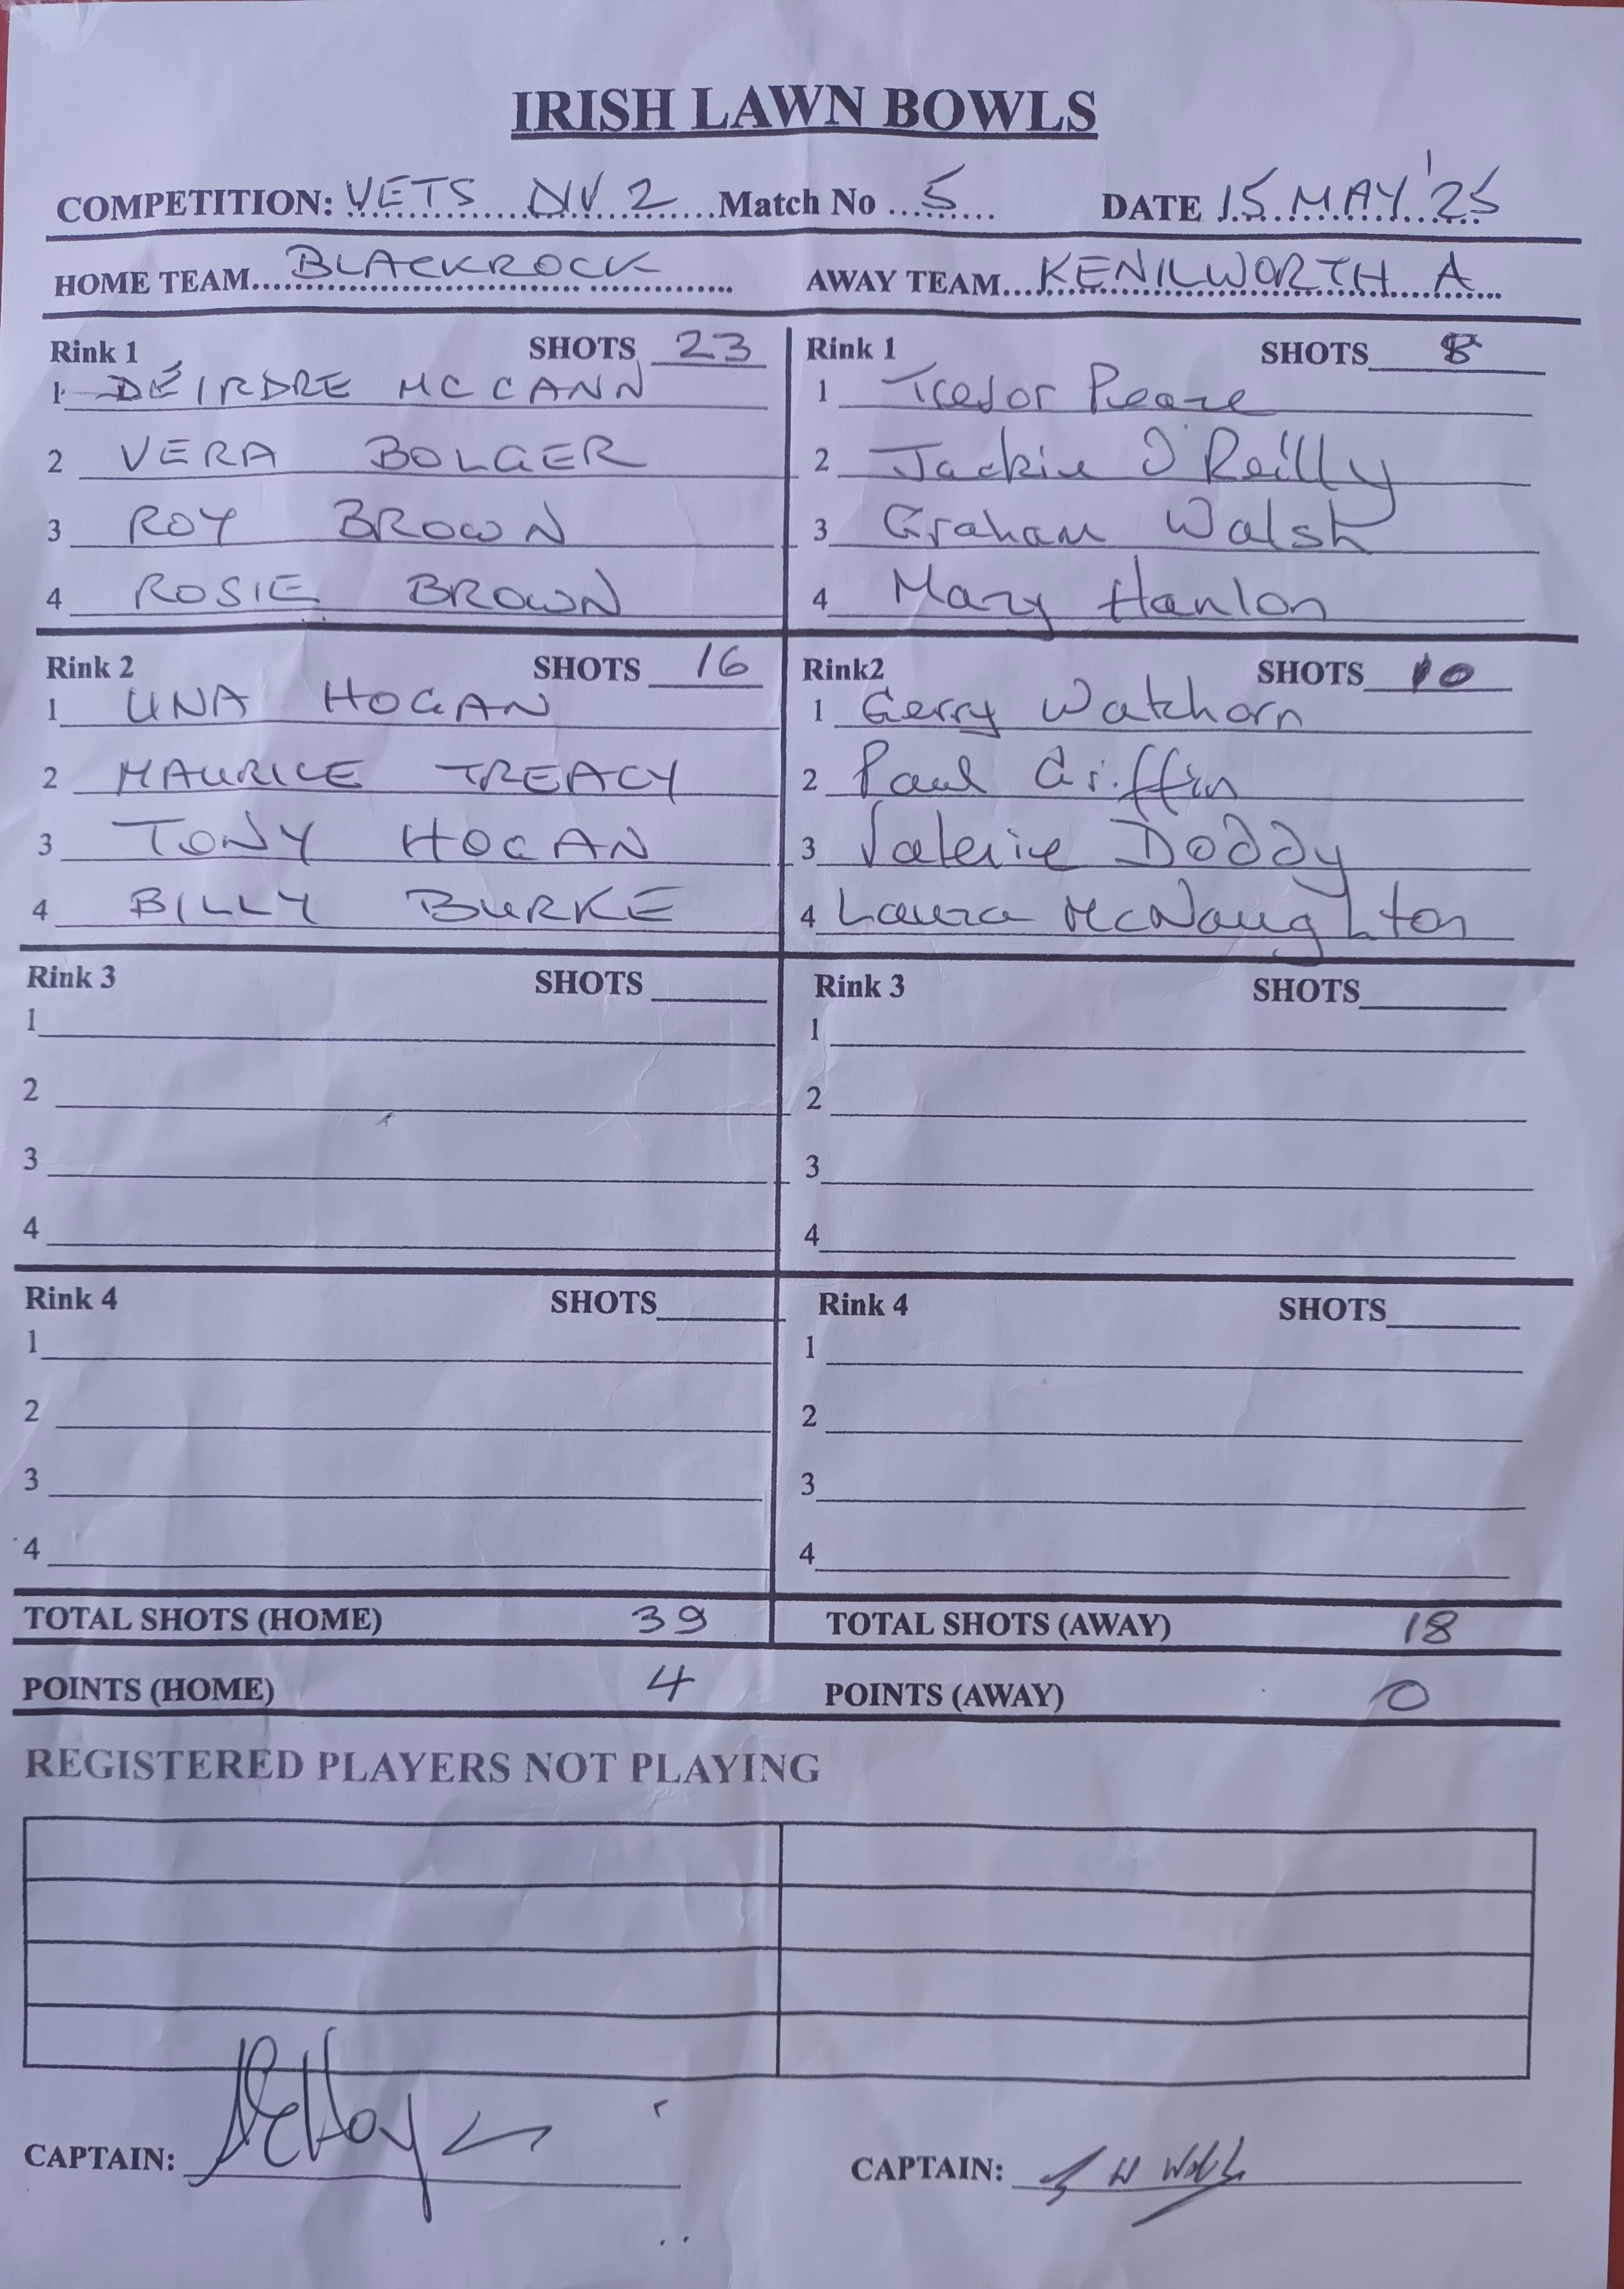 IRISH LAWN BOWLS
COMPETITION: VETS DIV 2 Match No 5 DATE 15 MAY '25
HOME TEAM BLACKROCK AWAY TEAM KENILWORTH A
Rink 1 SHOTS 23
1 DÉIRDRE MCCANN
2 VERA BOLGER
3 ROY BROWN
4 ROSIE BROWN
Rink 1 SHOTS 8
1 Trevor Peare
2 Jackie O'Reilly
3 Graham Walsh
4 Mary Hanlon
Rink 2 SHOTS 16
1 UNA HOGAN
2 MAURICE TREACY
3 TONY HOGAN
4 BILLY BURKE
Rink2 SHOTS 10
1 Gerry Watchorn
2 Paul Griffin
3 Valerie Doddy
4 Laura McNaughton
Rink 3 SHOTS
1
2
3
4
Rink 3 SHOTS
1
2
3
4
Rink 4 SHOTS
1
2
3
4
Rink 4 SHOTS
1
2
3
4
TOTAL SHOTS (HOME) 39 TOTAL SHOTS (AWAY) 18
POINTS (HOME) 4 POINTS (AWAY) 0
REGISTERED PLAYERS NOT PLAYING
CAPTAIN: CAPTAIN: